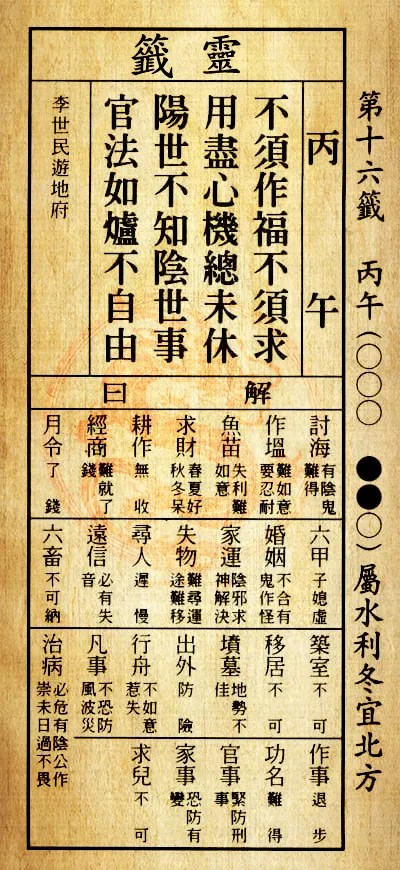 第十六籤 丙午(○○○ ●●○)屬水利冬宜北方
靈籤
丙午
不須作福不須求
用盡心機總未休
陽世不知陰世事
官法如爐不自由
李世民遊地府
解曰
討海 有陰鬼難得
作塭 難如意要忍耐
魚苗 失利難如意
求財 春夏好秋冬呆
耕作 無收
經商 難就了錢
月令 了錢
六甲 子媳虛
婚姻 不合有鬼作怪
家運 陰邪求神解決
失物 難尋運途難移
尋人 遲慢
遠信 必有失音
六畜 不可納
築室 不可
移居 不可
墳墓 地勢不佳
出外 防險
行舟 不如意惹失
凡事 不恐防風波災
治病 必危有陰公作祟未日過不畏
作事 退步
功名 難得
官事 緊防刑事
家事 恐防有變
求兒 不可